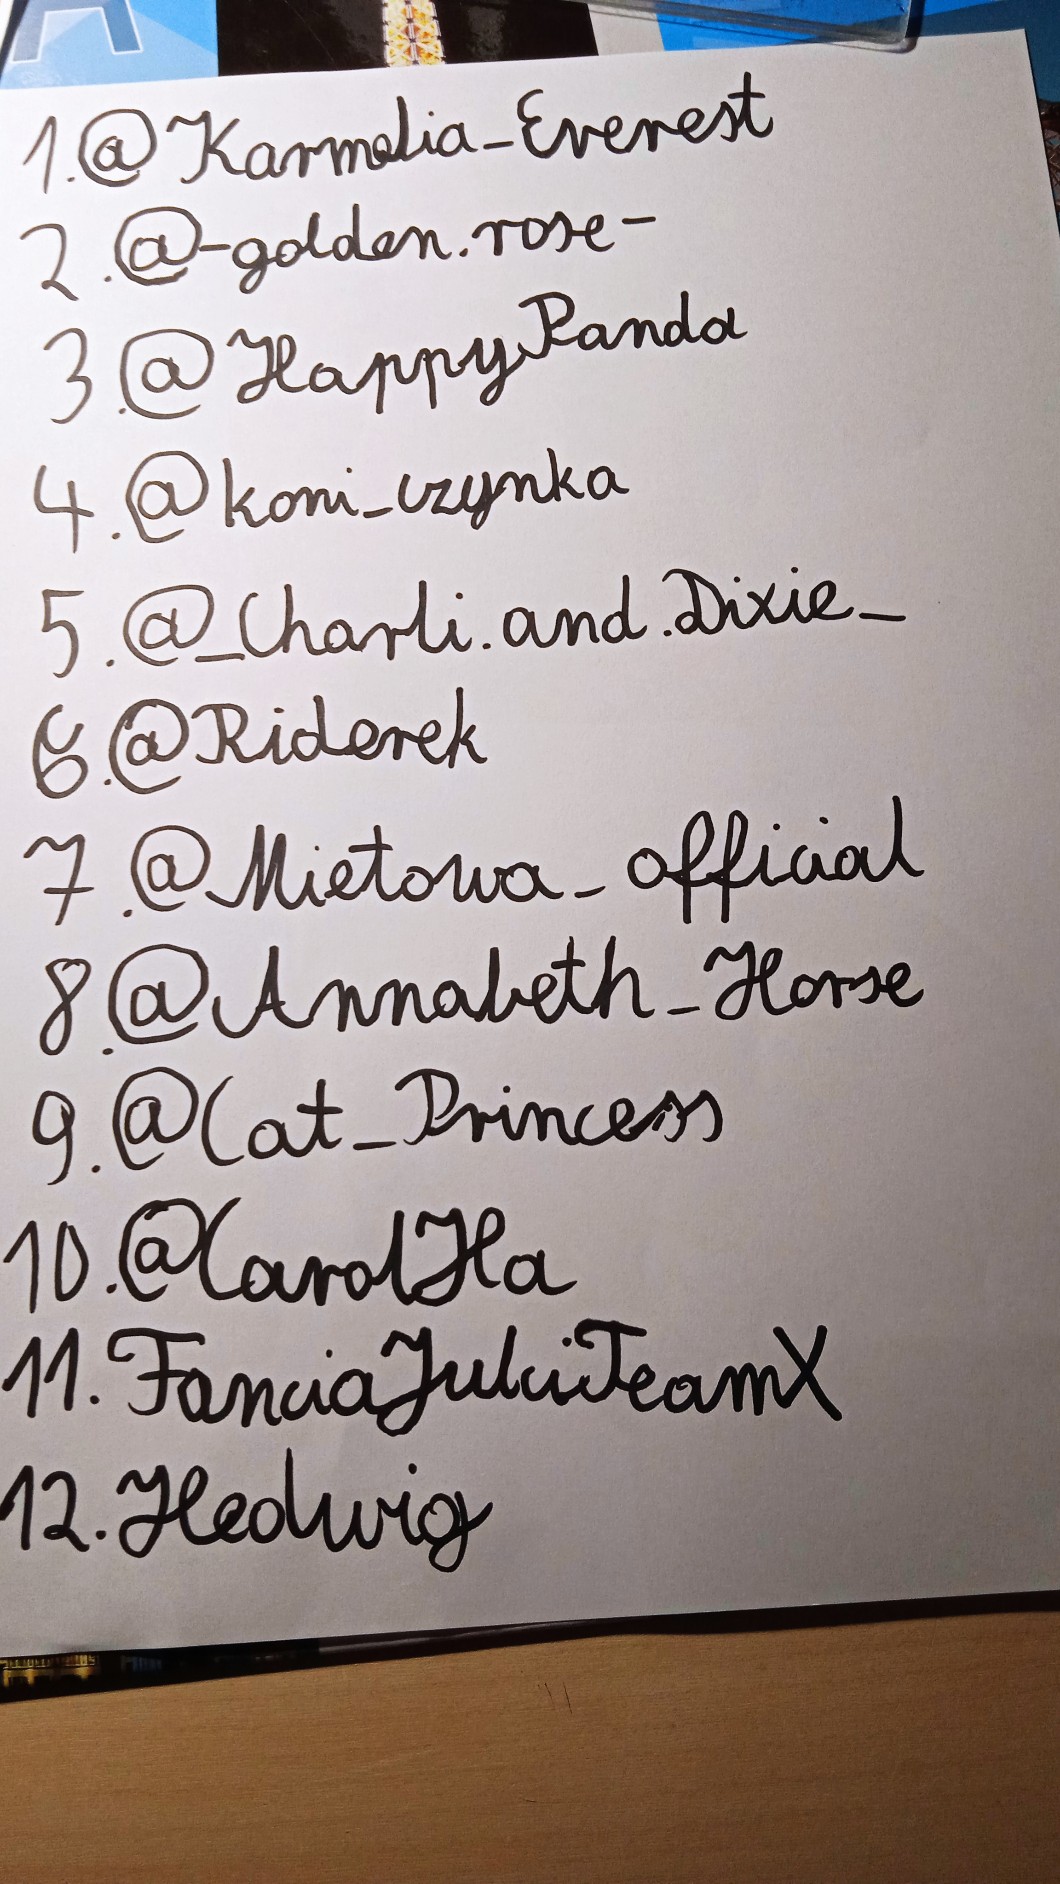 A
1.@Karmelia_Everest
2.@-golden.rose-
3.@HappyPanda
4.@koni_czynka
5.@_Charli.and.Dixie_
6.@Riderek
7.@Mietowa_official
8.@Annabeth_Horse
9.@Cat_Princess
10.@CarolHa
11.FanciaJulciTeamX
12.Hedwig